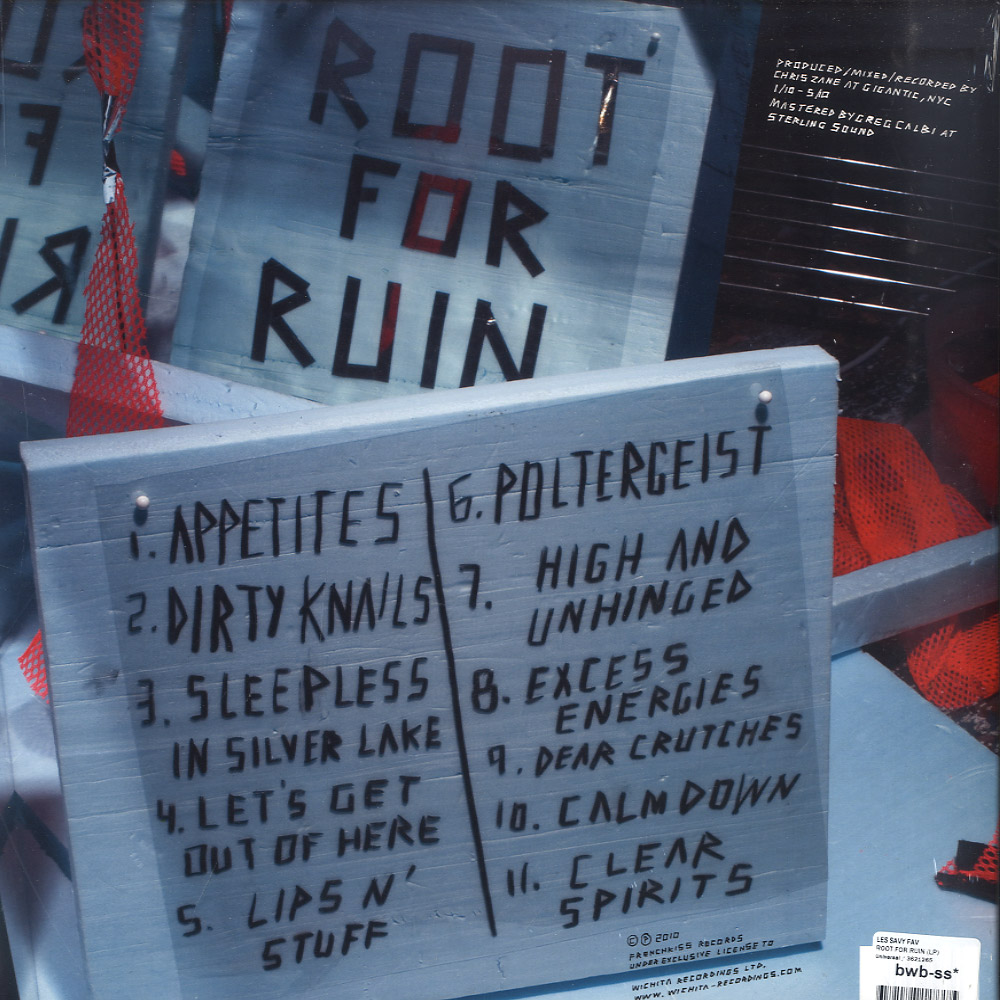 ROOT
FOR
RUIN
PRODUCED/MIXED/RECORDED BY
CHRIS ZANE AT GIGANTIC, NYC
1/10 - 5/10
MASTERED BY GREG CALBI AT
STERLING SOUND
1. APPETITES
2. DIRTY KNAILS
3. SLEEPLESS
IN SILVER LAKE
4. LET'S GET
OUT OF HERE
5. LIPS N'
STUFF
6. POLTERGEIST
7. HIGH AND
UNHINGED
8. EXCESS
ENERGIES
9. DEAR CRUTCHES
10. CALM DOWN
11. CLEAR
SPIRITS
© ℗ 2010
FRENCHKISS RECORDS
UNDER EXCLUSIVE LICENSE TO
WICHITA RECORDINGS LTD.
WWW.WICHITA-RECORDINGS.COM
LES SAVY FAV
ROOT FOR RUIN (LP)
Universal * 3621265
bwb-ss*